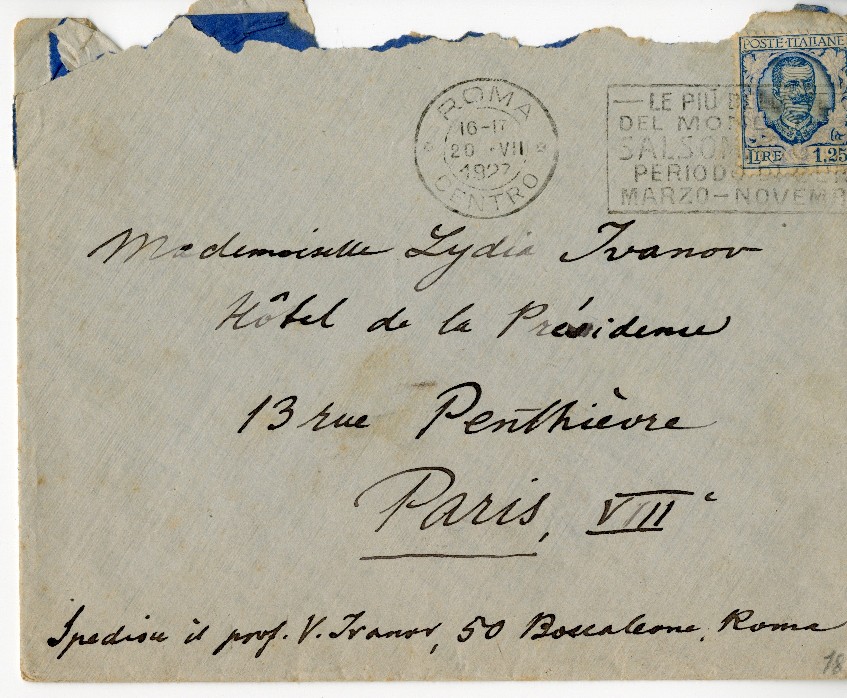 POSTE·ITALIANE
LIRE 1.25
ROMA
16-17
20 ·VII
1927
CENTRO
LE PIÙ
DEL
PERIODO DI
MARZO-
Mademoiselle Lydia Ivanov
Hôtel de la Présidence
13 rue Penthièvre
Paris, VIIIe
Spedisce il prof. V. Ivanov, 50 Boccaleone, Roma
18